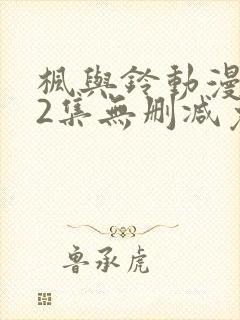 楓與鈴動漫
2集無刪減
魯承虎